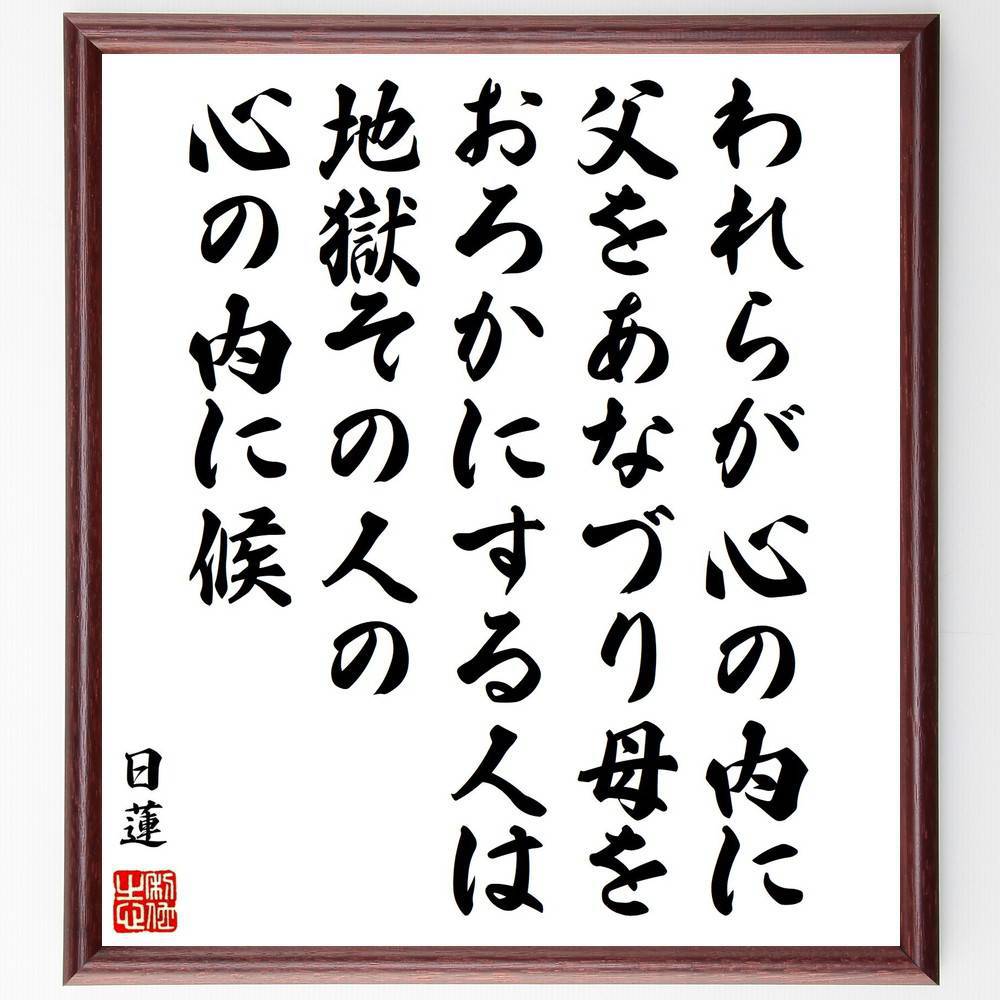 われらが心の内に
父をあなづり母を
おろかにする人は
地獄その人の
心の内に候
日蓮